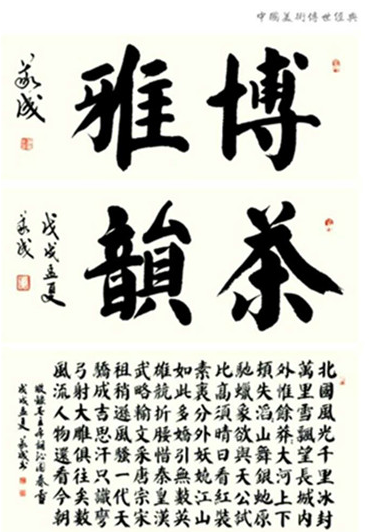 中國美術傳世經典
博雅
茶韻
戊戌孟夏
北國風光千里冰封
萬里雪飄望長城内
外惟餘莽大河上下
頓失滔山舞銀蛇原
馳蠟象欲與天公試
比高須晴日看紅裝
素裹分外妖嬈江山
如此多嬌引無數英
雄競折腰惜秦皇漢
武略輸文采唐宗宋
祖稍遜風騷一代天
驕成吉思汗只識彎
弓射大雕俱往矣數
風流人物還看今朝
敬錄毛主席詞沁園春雪
戊戌孟夏